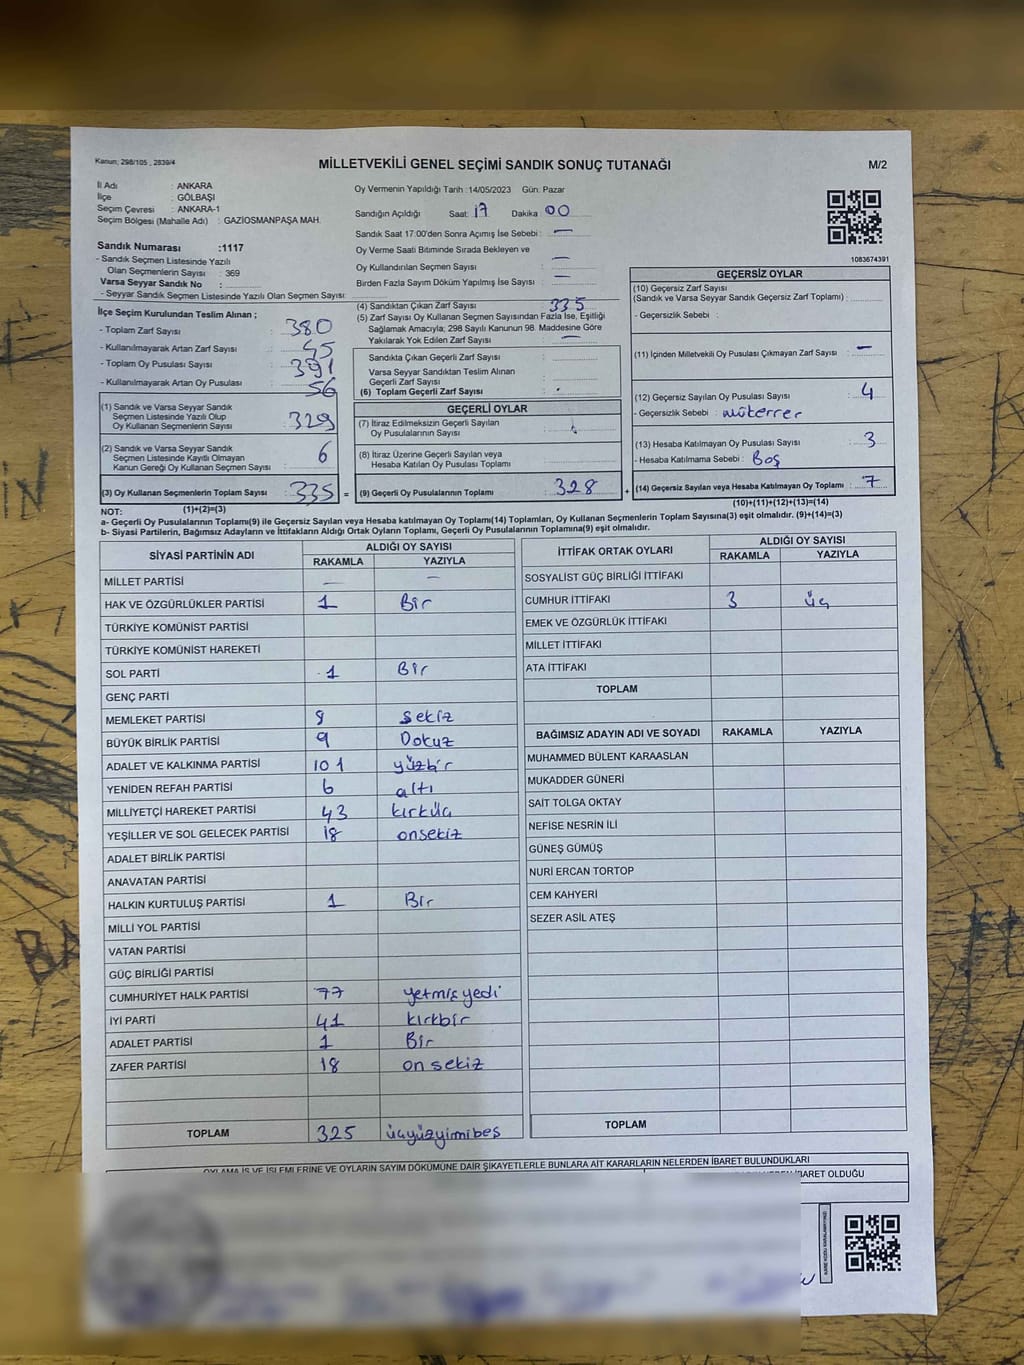 Kanun; 298/105 , 2839/4
MİLLETVEKİLİ GENEL SEÇİMİ SANDIK SONUÇ TUTANAĞI
M/2
İl Adı : ANKARA
İlçe : GÖLBAŞI
Seçim Çevresi : ANKARA-1
Seçim Bölgesi (Mahalle Adı) : GAZİOSMANPAŞA MAH.
Sandık Numarası :1117
- Sandık Seçmen Listesinde Yazılı
Olan Seçmenlerin Sayısı : 369
Varsa Seyyar Sandık No :
- Seyyar Sandık Seçmen Listesinde Yazılı Olan Seçmen Sayısı:
Oy Vermenin Yapıldığı Tarih :14/05/2023 Gün: Pazar
Sandığın Açıldığı Saat: 17 Dakika: 00
Sandık Saat 17:00'den Sonra Açımış İse Sebebi : —
Oy Verme Saati Bitiminde Sırada Bekleyen ve
Oy Kullandırılan Seçmen Sayısı : —
Birden Fazla Sayım Döküm Yapılmış İse Sayısı : —
1083674391
İlçe Seçim Kurulundan Teslim Alınan ;
- Toplam Zarf Sayısı : 380
- Kullanılmayarak Artan Zarf Sayısı : 45
- Toplam Oy Pusulası Sayısı : 391
- Kullanılmayarak Artan Oy Pusulası : 56
(1) Sandık ve Varsa Seyyar Sandık
Seçmen Listesinde Yazılı Olup
Oy Kullanan Seçmenlerin Sayısı : 329
(2) Sandık ve Varsa Seyyar Sandık
Seçmen Listesinde Kayıtlı Olmayan
Kanun Gereği Oy Kullanan Seçmen Sayısı : 6
(3) Oy Kullanan Seçmenlerin Toplam Sayısı : 335 =
(4) Sandıktan Çıkan Zarf Sayısı : 335
(5) Zarf Sayısı Oy Kullanan Seçmen Sayısından Fazla İse, Eşitliği
Sağlamak Amacıyla; 298 Sayılı Kanunun 98. Maddesine Göre
Yakılarak Yok Edilen Zarf Sayısı : —
Sandıkta Çıkan Geçerli Zarf Sayısı :
Varsa Seyyar Sandıktan Teslim Alınan
Geçerli Zarf Sayısı :
(6) Toplam Geçerli Zarf Sayısı :
GEÇERLİ OYLAR
(7) İtiraz Edilmeksizin Geçerli Sayılan
Oy Pusulalarının Sayısı :
(8) İtiraz Üzerine Geçerli Sayılan veya
Hesaba Katılan Oy Pusulası Toplamı :
(9) Geçerli Oy Pusulalarının Toplamı : 328 +
GEÇERSİZ OYLAR
(10) Geçersiz Zarf Sayısı
(Sandık ve Varsa Seyyar Sandık Geçersiz Zarf Toplamı) :
- Geçersizlik Sebebi :
(11) İçinden Milletvekili Oy Pusulası Çıkmayan Zarf Sayısı : —
(12) Geçersiz Sayılan Oy Pusulası Sayısı : 4
- Geçersizlik Sebebi : mükerrer
(13) Hesaba Katılmayan Oy Pusulası Sayısı : 3
- Hesaba Katılmama Sebebi : Boş
(14) Geçersiz Sayılan veya Hesaba Katılmayan Oy Toplamı : 7
(1)+(2)=(3)
(10)+(11)+(12)+(13)=(14)
NOT:
a- Geçerli Oy Pusulalarının Toplamı(9) ile Geçersiz Sayılan veya Hesaba katılmayan Oy Toplamı(14) Toplamları, Oy Kullanan Seçmenlerin Toplam Sayısına(3) eşit olmalıdır. (9)+(14)=(3)
b- Siyasi Partilerin, Bağımsız Adayların ve İttifakların Aldığı Ortak Oyların Toplamı, Geçerli Oy Pusulalarının Toplamına(9) eşit olmalıdır.
SİYASİ PARTİNİN ADI ALDIĞI OY SAYISI
RAKAMLA YAZIYLA
MİLLET PARTİSİ — —
HAK VE ÖZGÜRLÜKLER PARTİSİ 1 Bir
TÜRKİYE KOMÜNİST PARTİSİ
TÜRKİYE KOMÜNİST HAREKETİ
SOL PARTİ 1 Bir
GENÇ PARTİ
MEMLEKET PARTİSİ 8 sekiz
BÜYÜK BİRLİK PARTİSİ 9 Dokuz
ADALET VE KALKINMA PARTİSİ 101 yüzbir
YENİDEN REFAH PARTİSİ 6 altı
MİLLİYETÇİ HAREKET PARTİSİ 43 kırküç
YEŞİLLER VE SOL GELECEK PARTİSİ 18 onsekiz
ADALET BİRLİK PARTİSİ
ANAVATAN PARTİSİ
HALKIN KURTULUŞ PARTİSİ 1 Bir
MİLLİ YOL PARTİSİ
VATAN PARTİSİ
GÜÇ BİRLİĞİ PARTİSİ
CUMHURİYET HALK PARTİSİ 77 yetmiş yedi
İYİ PARTİ 41 kırkbir
ADALET PARTİSİ 1 Bir
ZAFER PARTİSİ 18 on sekiz
TOPLAM 325 üçyüzyirmibeş
İTTİFAK ORTAK OYLARI ALDIĞI OY SAYISI
RAKAMLA YAZIYLA
SOSYALİST GÜÇ BİRLİĞİ İTTİFAKI
CUMHUR İTTİFAKI 3 üç
EMEK VE ÖZGÜRLÜK İTTİFAKI
MİLLET İTTİFAKI
ATA İTTİFAKI
TOPLAM
BAĞIMSIZ ADAYIN ADI VE SOYADI RAKAMLA YAZIYLA
MUHAMMED BÜLENT KARAASLAN
MUKADDER GÜNERİ
SAİT TOLGA OKTAY
NEFİSE NESRİN İLİ
GÜNEŞ GÜMÜŞ
NURİ ERCAN TORTOP
CEM KAHYERİ
SEZER ASİL ATEŞ
TOPLAM
OYLAMA İŞ VE İŞLEMLERİNE VE OYLARIN SAYIM DÖKÜMÜNE DAİR ŞİKAYETLERLE BUNLARA AİT KARARLARIN NELERDEN İBARET BULUNDUKLARI
İBARET OLDUĞU